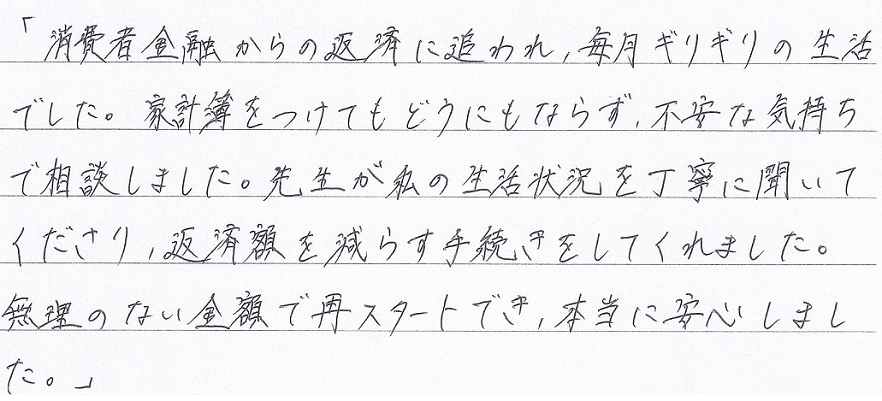 「消費者金融からの返済に追われ,毎月ギリギリの生活
でした。家計簿をつけてもどうにもならず,不安な気持ち
で相談しました。先生が私の生活状況を丁寧に聞いて
くださり,返済額を減らす手続きをしてくれました。
無理のない金額で再スタートでき,本当に安心しまし
た。」